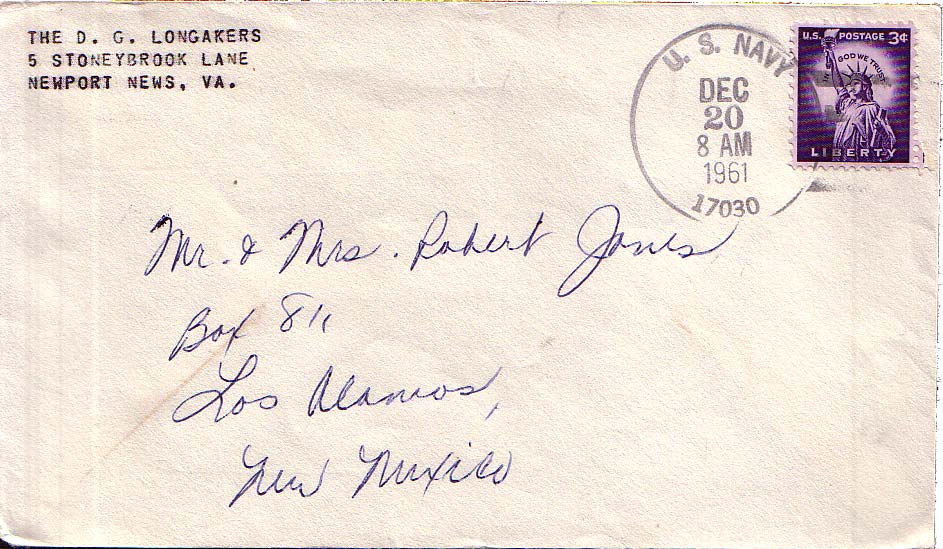 THE D. G. LONGAKERS
5 STONEYBROOK LANE
NEWPORT NEWS, VA.
U. S. NAVY
DEC
20
8 AM
1961
17030
U.S. POSTAGE 3¢
IN GOD WE TRUST
LIBERTY
Mr. & Mrs. Robert Jones
Box 811
Los Alamos,
New Mexico